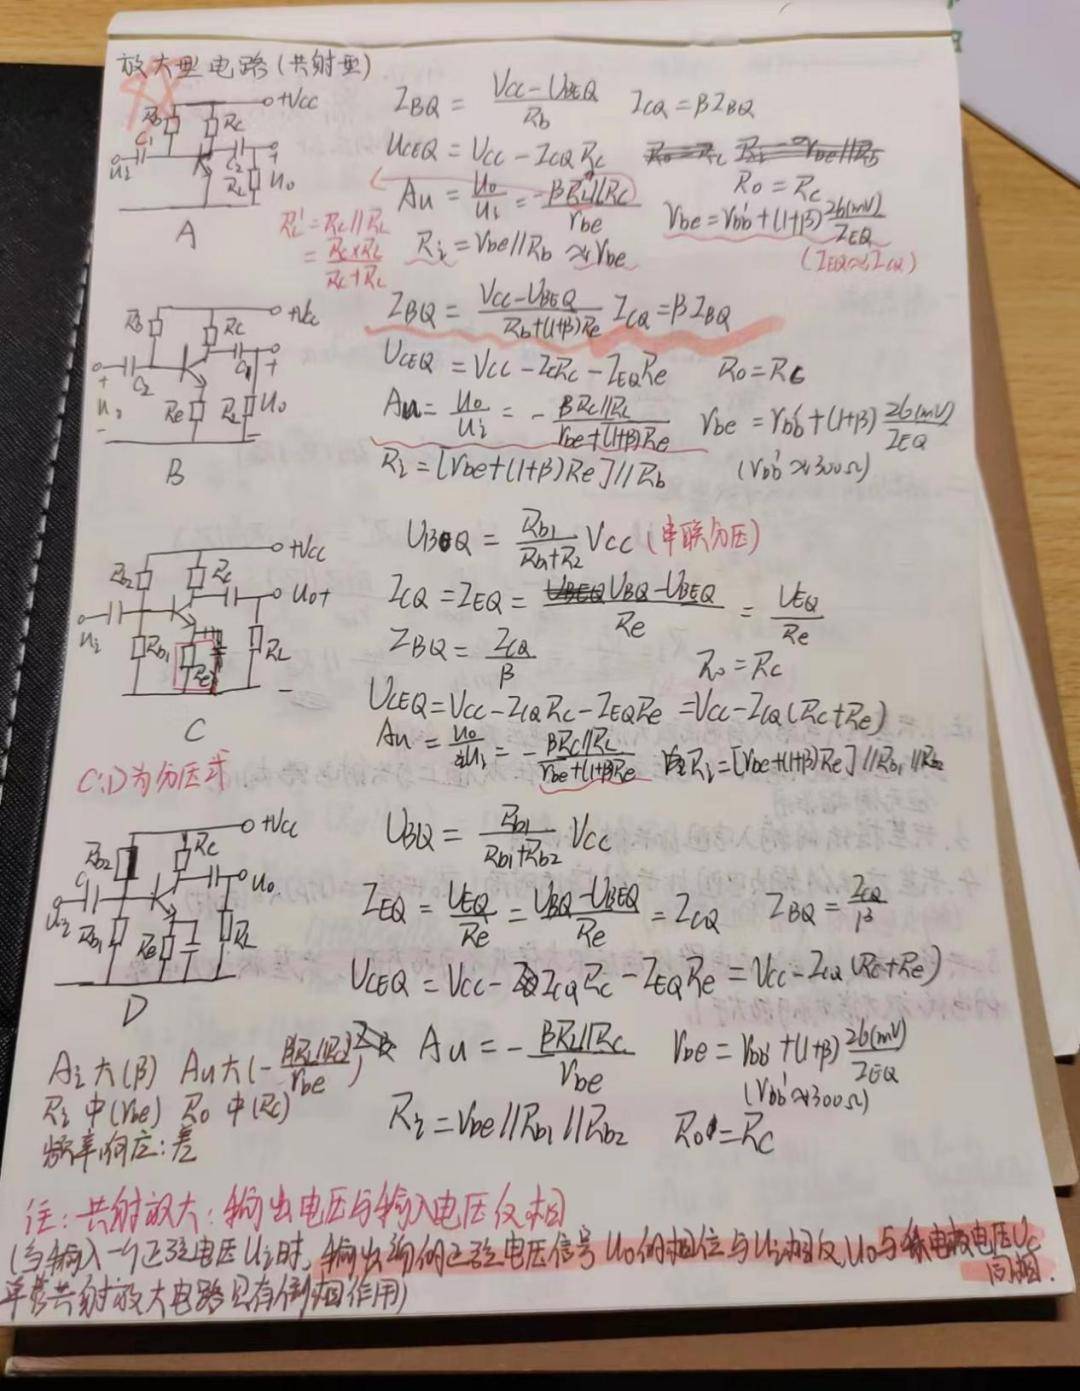 放大型电路(共射型)
+Vcc
Rb
Rc
C1
C2
Ui
RL
Uo
A
IBQ = (Vcc-UBEQ)/Rb ICQ = βIBQ
UCEQ = Vcc - ICQRc
Ro = Rc
Au = Uo/Ui = -βRL//Rc/rbe
rbe = rbb' + (1+β)26(mV)/IEQ
(IEQ≈ICQ)
RL' = Rc//RL
= Rc×RL/(Rc+RL)
Ri = rbe//Rb ≈ rbe
+Vcc
Rb
Rc
C2
C1
Re
RL
Uo
Ui
B
IBQ = (Vcc-UBEQ)/(Rb+(1+β)Re) ICQ = βIBQ
UCEQ = Vcc - ICRc - IEQRe Ro = Rc
Au = Uo/Ui = -βRc//RL/(rbe+(1+β)Re) rbe = rbb' + (1+β)26(mV)/IEQ
Ri = [rbe+(1+β)Re]//Rb (rbb'≈300Ω)
+Vcc
Rb2
Rc
Uo+
Ui
Rb1
Re
RL
C
UBQ = Rb1/(Rb1+R2) Vcc (串联分压)
ICQ = IEQ = (UBQ-UBEQ)/Re = UEQ/Re
IBQ = ICQ/β
Ro = Rc
UCEQ = Vcc - ICQRc - IEQRe = Vcc - ICQ(Rc+Re)
Au = Uo/Ui = -βRc//RL/(rbe+(1+β)Re) Ri = [rbe+(1+β)Re]//Rb1//Rb2
C、D为分压式
+Vcc
Rb2
Rc
Uo
Ui
Rb1
Re
RL
D
UBQ = Rb1/(Rb1+Rb2) Vcc
IEQ = UEQ/Re = (UBQ-UBEQ)/Re = ICQ IBQ = ICQ/β
UCEQ = Vcc - ICQRc - IEQRe = Vcc - ICQ(Rc+Re)
Ai大(β) Au大(-βRL//Rc/rbe)
Au = -βRL//Rc/rbe rbe = rbb' + (1+β)26(mV)/IEQ
(rbb'≈300Ω)
Ri中(rbe) Ro中(Rc)
Ri = rbe//Rb1//Rb2 Ro = Rc
频率响应:差
注:共射放大:输出电压与输入电压反相
(当输入一个正弦电压Ui时,输出的正弦电压信号Uo的相位与Ui相反,Uo与集电极电压Uc同相.
单管共射放大电路具有倒相作用)